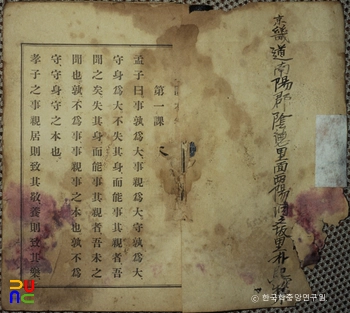 京畿道南陽郡陰德里面
第一課
孟子曰事孰爲大事親爲大守孰爲大
守身爲大不失其身而能事其親者吾
聞之矣失其身而能事其親者吾未之
聞也孰不爲事事親事之本也孰不爲
守守身守之本也
孝子之事親居則致其敬養則致其樂
ⓒ 한국학중앙연구원